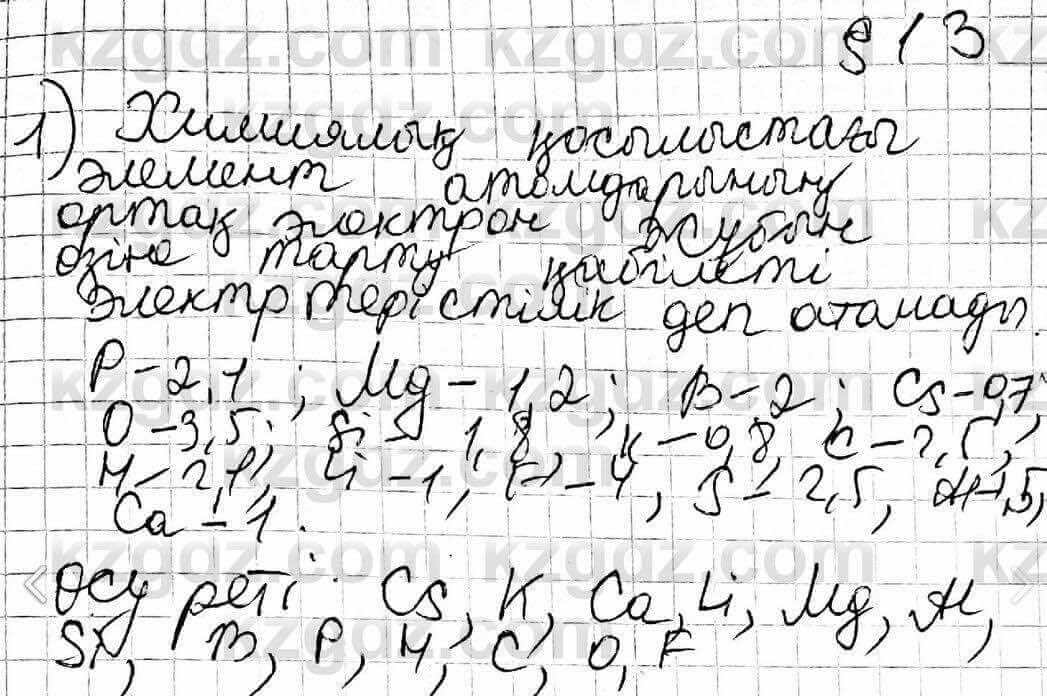 § 13
1) Химиялық қосылыстағы
элемент атомдарының
ортақ электрон жұбын
өзіне тарту қабілеті
электртерістілік деп атамады.
P - 2,1; Mg - 1,2; B - 2; Cs - 0,7;
O - 3,5; Si - 1,8, K - 0,8, C - 2,5,
H - 2,1, Li - 1, F - 4, S - 2,5, Al - 1,5,
Ca - 1.
Өсу реті Cs, K, Ca, Li, Mg, Al,
Si, B, P, H, C, O, F
kzgdz.com